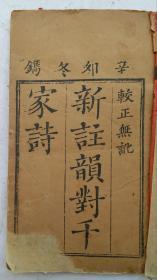 辛卯冬鐫
較正無訛
新註韻對千
家詩